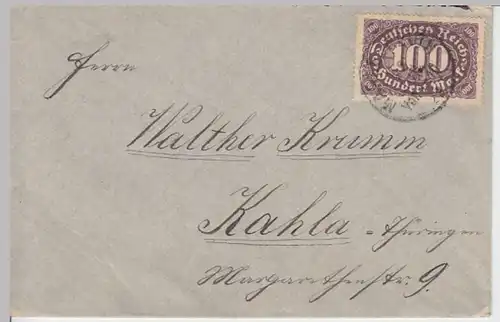 Deutsches Reich
100
Hundert Mark
Herrn
Walther Krumm
Kahla - Thüringen
Margarethenstr. 9.